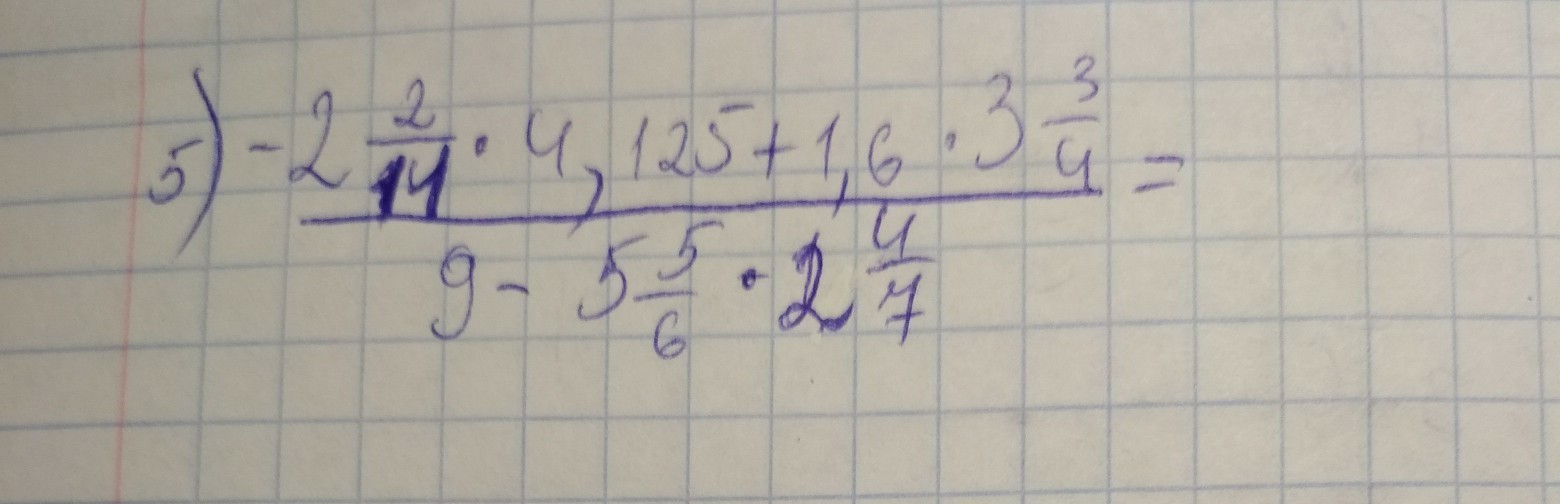 5) -2 2/11 · 4,125 + 1,6 · 3 3/4 =
9 - 5 5/6 · 2 4/7